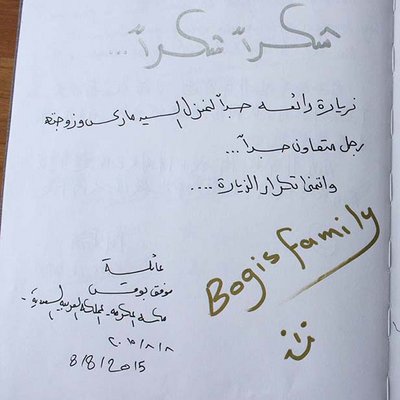 شكراً شكراً ...
زيارة رائعه جداً لمنزل السيد ماركس وزوجته
رجل متعاون جداً ...
واتمنا تكرار الزيارة ....
Bogis family
عائلة
موفق بوقس
مكة المكرمة - المملكة العربية السعودية -
٢٠١٥/٨/٨
8/8/2015